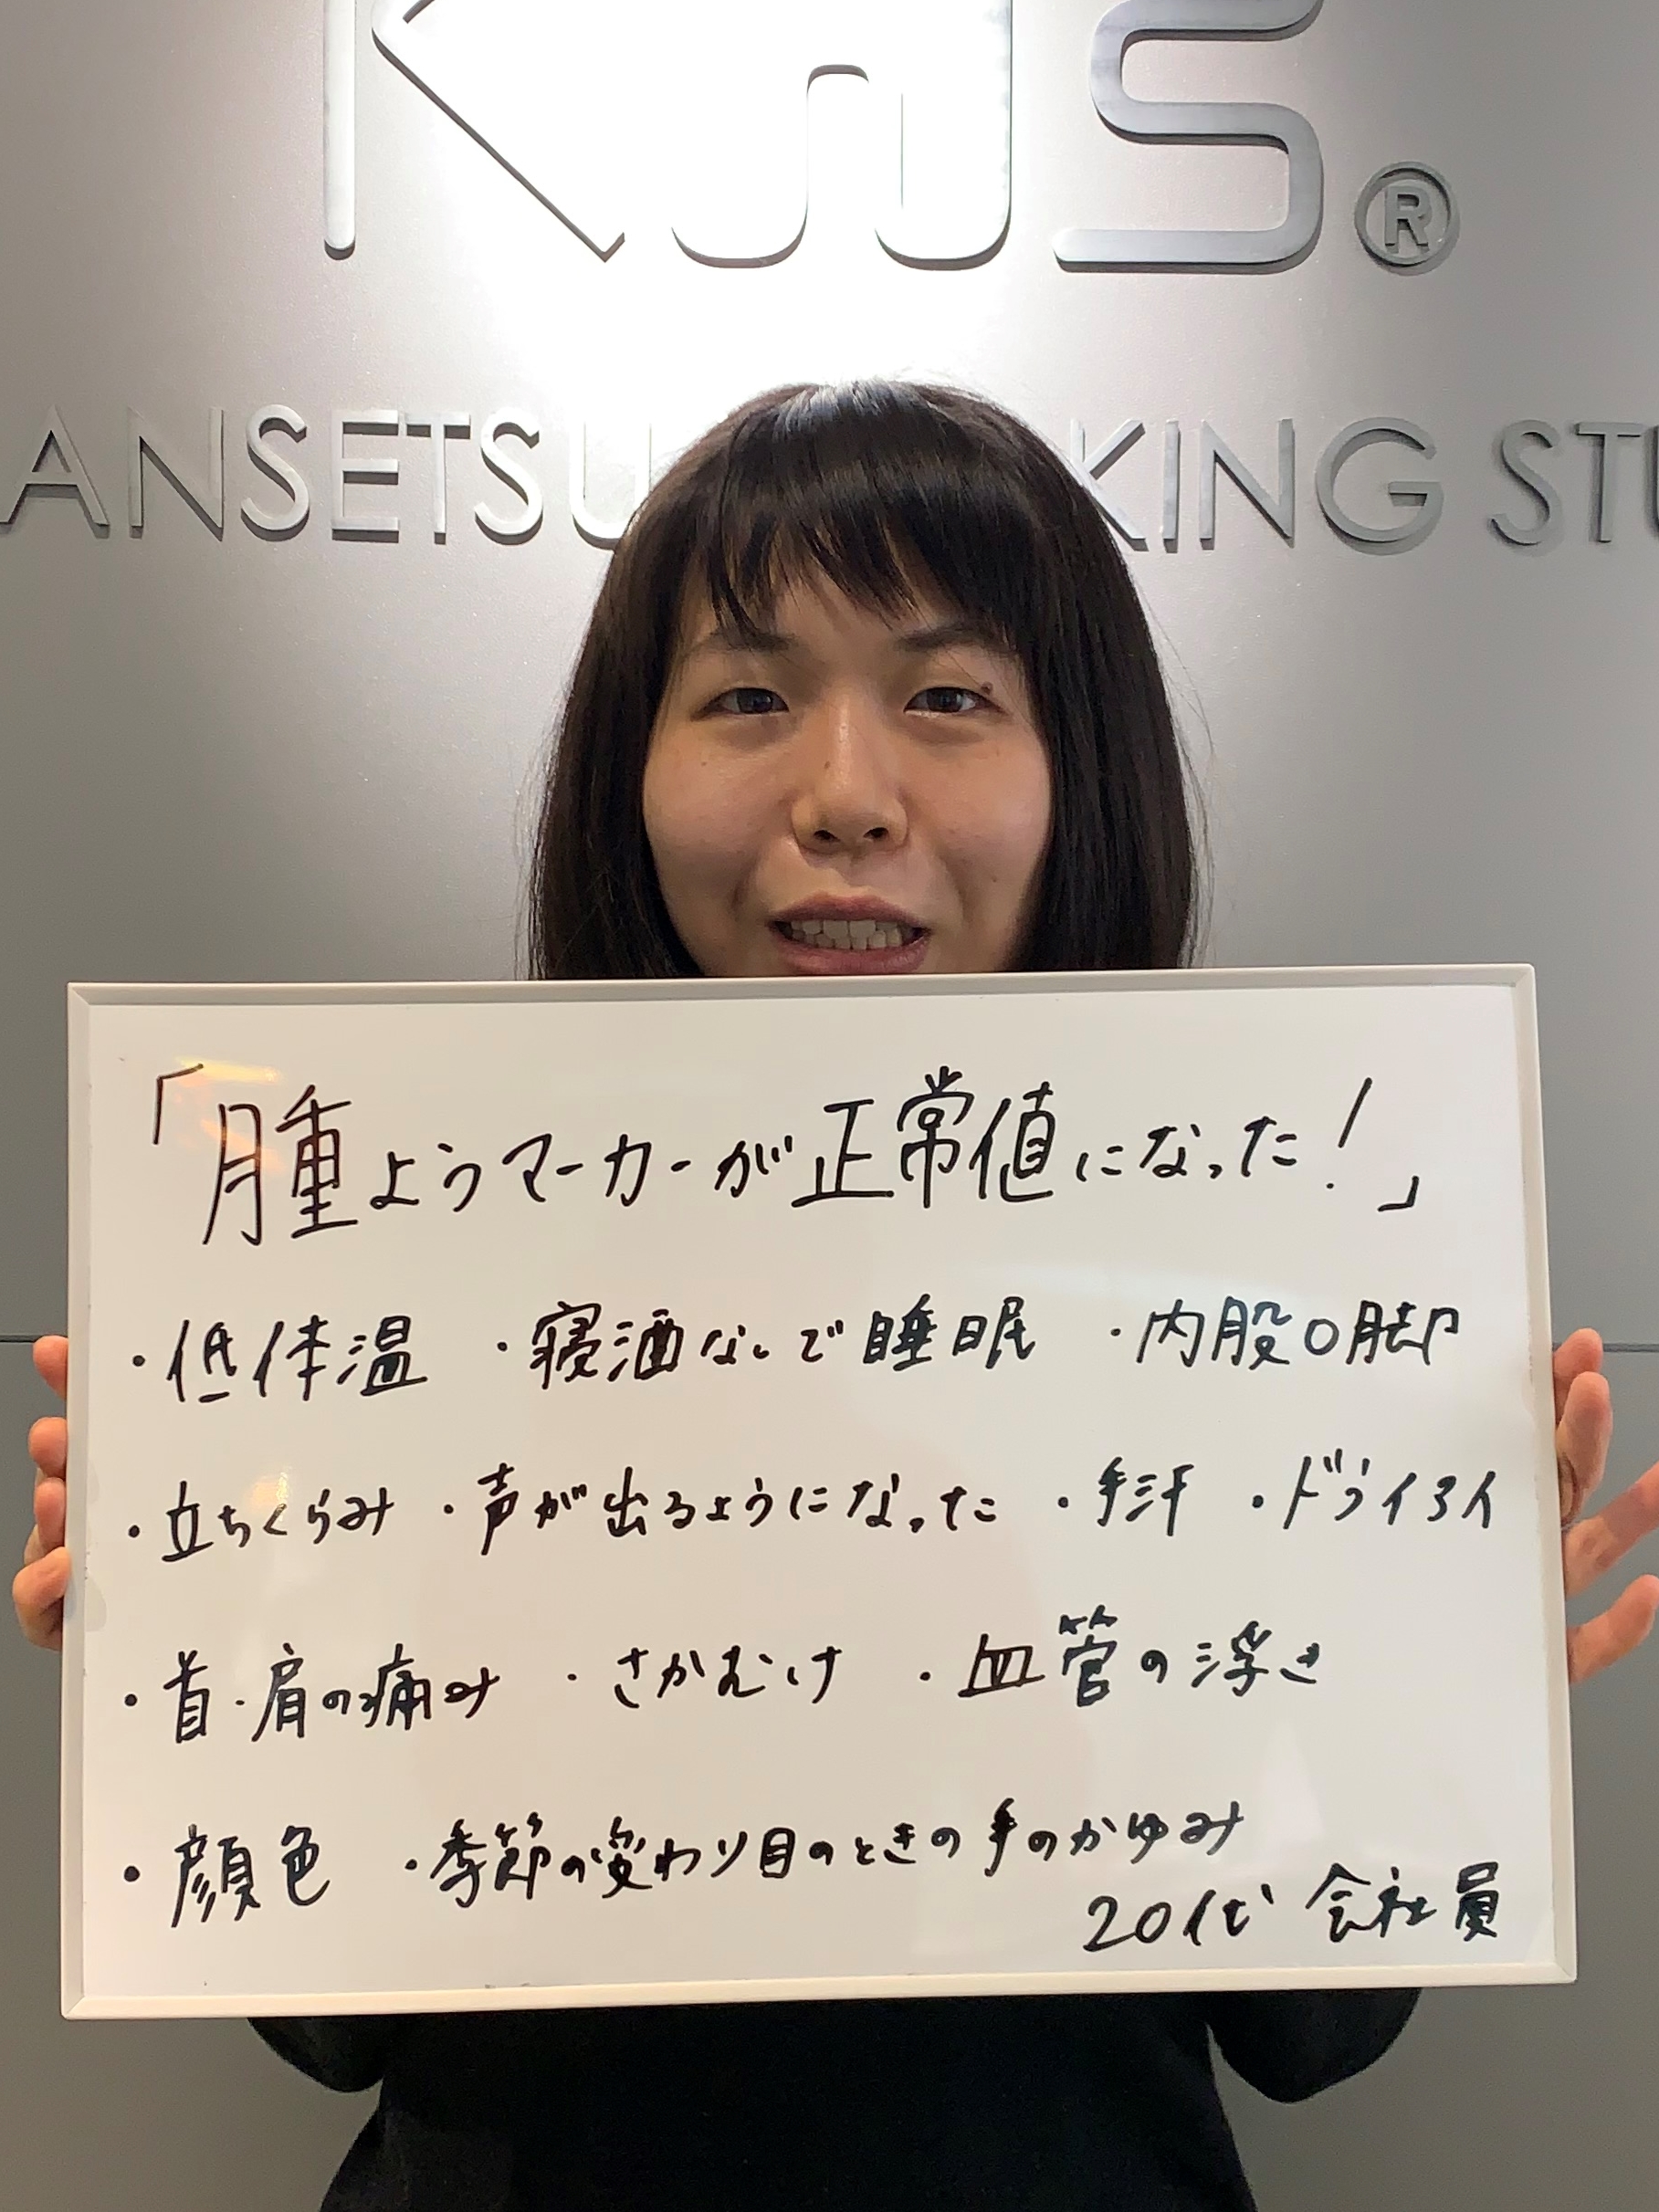 KJJS®
ANSETSU KING STU
「腫ようマーカーが正常値になった!」
・低体温 ・寝酒なしで睡眠 ・内股O脚
・立ちくらみ ・声が出るようになった ・手汗 ・ドライアイ
・首・肩の痛み ・さかむけ ・血管の浮き
・顔色 ・季節の変わり目のときの手のかゆみ
20代 会社員